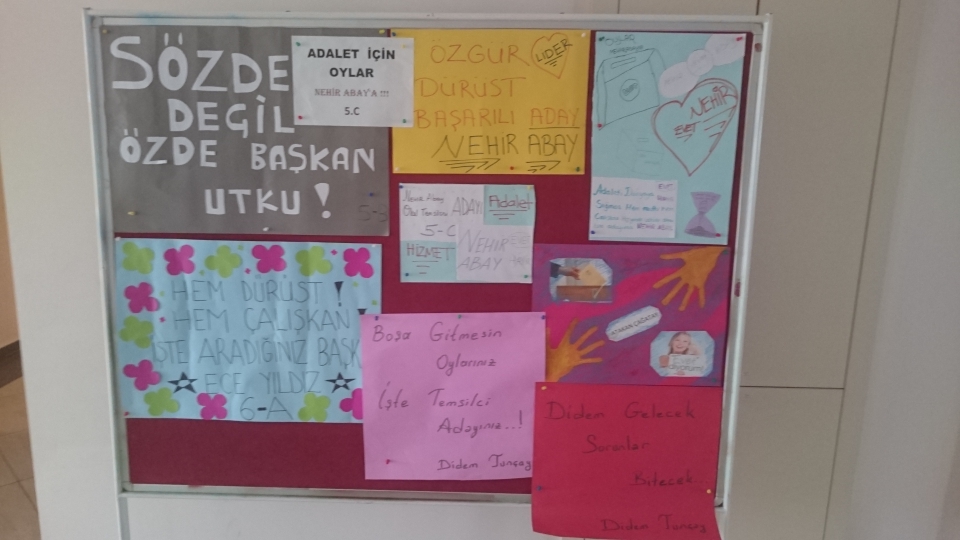 SÖZDE
DEGİL
ÖZDE BAŞKAN
UTKU!
ADALET İÇİN
OYLAR
NEHİR ABAY'A !!!
5.C
ÖZGÜR
LIDER
DÜRÜST
BAŞARILI ADAY
NEHIR ABAY
NEHİR
EVET
ADAYI
Adalet
5-C
HİZMET
NEHİR
ABAY
HEM DÜRÜST!
HEM ÇALIŞKAN!
İŞTE ARADIĞINIZ BAŞK
ECE YILDIZ
6-A
Boşa Gitmesin
Oylarınız
İşte Temsilci
Adayınız..!
Didem Tunçay
Didem Gelecek
Sorunlar
Bitecek...
Didem Tunçay